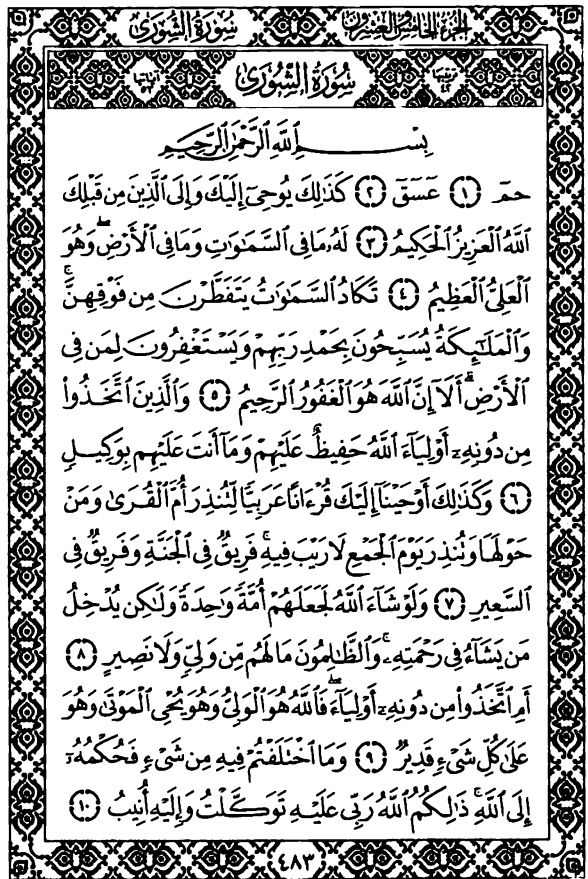 سُورَةُ الشُّورَىٰ الجُزْءُ الخَامِسُ وَالعِشْرُونَ
سُورَةُ الشُّورَىٰ
بِسْمِ ٱللَّهِ ٱلرَّحْمَٰنِ ٱلرَّحِيمِ
حمٓ ﴿١﴾ عٓسٓقٓ ﴿٢﴾ كَذَٰلِكَ يُوحِىٓ إِلَيْكَ وَإِلَى ٱلَّذِينَ مِن قَبْلِكَ
ٱللَّهُ ٱلْعَزِيزُ ٱلْحَكِيمُ ﴿٣﴾ لَهُۥ مَا فِى ٱلسَّمَٰوَٰتِ وَمَا فِى ٱلْأَرْضِ ۖ وَهُوَ
ٱلْعَلِىُّ ٱلْعَظِيمُ ﴿٤﴾ تَكَادُ ٱلسَّمَٰوَٰتُ يَتَفَطَّرْنَ مِن فَوْقِهِنَّ ۚ
وَٱلْمَلَٰٓئِكَةُ يُسَبِّحُونَ بِحَمْدِ رَبِّهِمْ وَيَسْتَغْفِرُونَ لِمَن فِى
ٱلْأَرْضِ ۗ أَلَآ إِنَّ ٱللَّهَ هُوَ ٱلْغَفُورُ ٱلرَّحِيمُ ﴿٥﴾ وَٱلَّذِينَ ٱتَّخَذُوا۟
مِن دُونِهِۦٓ أَوْلِيَآءَ ٱللَّهُ حَفِيظٌ عَلَيْهِمْ وَمَآ أَنتَ عَلَيْهِم بِوَكِيلٍ
﴿٦﴾ وَكَذَٰلِكَ أَوْحَيْنَآ إِلَيْكَ قُرْءَانًا عَرَبِيًّا لِّتُنذِرَ أُمَّ ٱلْقُرَىٰ وَمَنْ
حَوْلَهَا وَتُنذِرَ يَوْمَ ٱلْجَمْعِ لَا رَيْبَ فِيهِ ۚ فَرِيقٌ فِى ٱلْجَنَّةِ وَفَرِيقٌ فِى
ٱلسَّعِيرِ ﴿٧﴾ وَلَوْ شَآءَ ٱللَّهُ لَجَعَلَهُمْ أُمَّةً وَٰحِدَةً وَلَٰكِن يُدْخِلُ
مَن يَشَآءُ فِى رَحْمَتِهِۦ ۚ وَٱلظَّٰلِمُونَ مَا لَهُم مِّن وَلِىٍّ وَلَا نَصِيرٍ ﴿٨﴾
أَمِ ٱتَّخَذُوا۟ مِن دُونِهِۦٓ أَوْلِيَآءَ ۖ فَٱللَّهُ هُوَ ٱلْوَلِىُّ وَهُوَ يُحْىِ ٱلْمَوْتَىٰ وَهُوَ
عَلَىٰ كُلِّ شَىْءٍ قَدِيرٌ ﴿٩﴾ وَمَا ٱخْتَلَفْتُمْ فِيهِ مِن شَىْءٍ فَحُكْمُهُۥٓ
إِلَى ٱللَّهِ ۚ ذَٰلِكُمُ ٱللَّهُ رَبِّى عَلَيْهِ تَوَكَّلْتُ وَإِلَيْهِ أُنِيبُ ﴿١٠﴾
٤٨٣